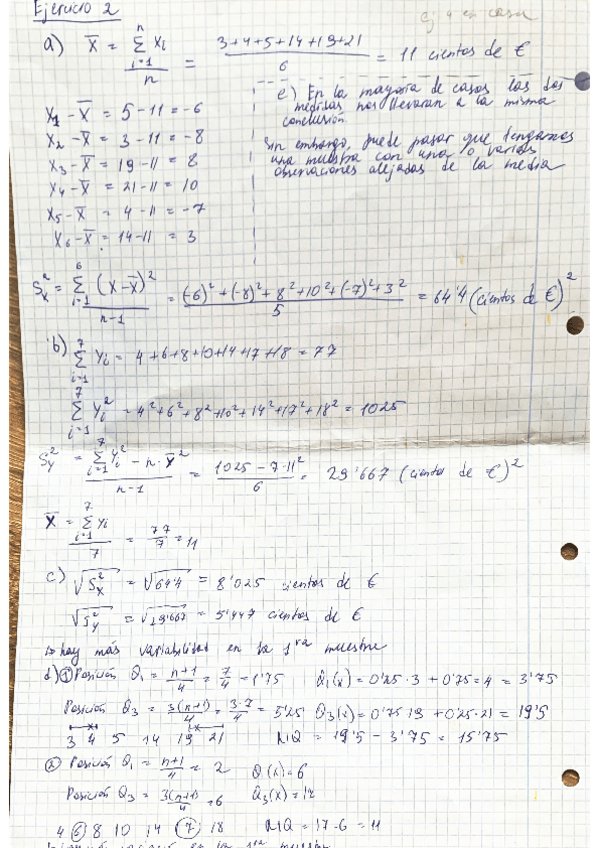 Ejercicio 2
Ej 4 en casa
a) X̄ = Σ(i=1, n) Xi / n = 3+4+5+14+19+21 / 6 = 11 cientos de €
X1 - X̄ = 5-11 = -6
X2 - X̄ = 3-11 = -8
X3 - X̄ = 19-11 = 8
X4 - X̄ = 21-11 = 10
X5 - X̄ = 4-11 = -7
X6 - X̄ = 14-11 = 3
e) En la mayoría de casos las dos
medidas nos llevaran a la misma
conclusión
Sin embargo, puede pasar que tengamos
una muestra con una o varias
observaciones alejadas de la media
S²x = Σ(i=1, 6) (X-X̄)² / n-1 = (-6)²+(-8)²+8²+10²+(-7)²+3² / 5 = 64'4 (cientos de €)²
b) Σ(i=1, 7) Yi = 4+6+8+10+14+17+18 = 77
Σ(i=1, 7) Yi² = 4²+6²+8²+10²+14²+17²+18² = 1025
S²y = Σ(i=1, 7) Yi² - n·X̄² / n-1 = 1025 - 7·11² / 6 = 29'667 (cientos de €)²
X̄ = Σ(i=1, 7) Yi / 7 = 77 / 7 = 11
c) √S²x = √64'4 = 8'025 cientos de €
√S²y = √29'667 = 5'447 cientos de €
hay más variabilidad en la 1ra muestra
d) ① Posición Q1 = n+1 / 4 = 7 / 4 = 1'75 Q1(x) = 0'25·3 + 0'75·4 = 3'75
Posición Q3 = 3(n+1) / 4 = 3·7 / 4 = 5'25 Q3(x) = 0'75·19 + 0'25·21 = 19'5
3 4 5 14 19 21 RIQ = 19'5 - 3'75 = 15'75
② Posición Q1 = n+1 / 4 = 2 Q1(x) = 6
Posición Q3 = 3(n+1) / 4 = 6 Q3(x) = 17
4 6 8 10 14 17 18 RIQ = 17-6 = 11
en la 1ra muestra